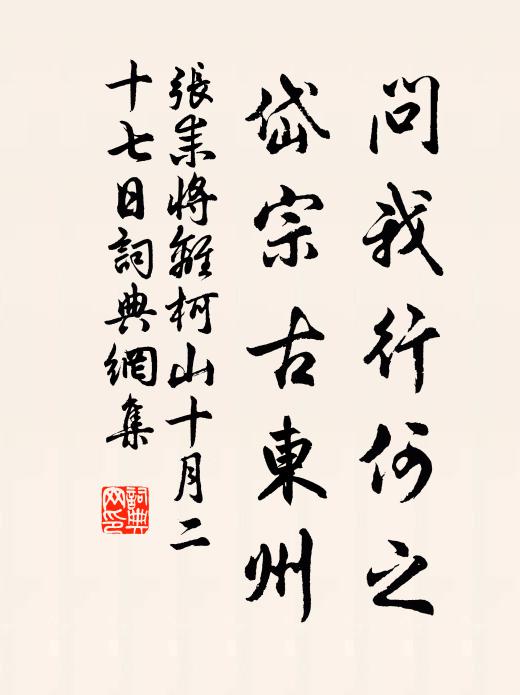 問我行何之
岱宗古東州
張耒將離柯山十月二
十七日詞典網集
詞典
网印